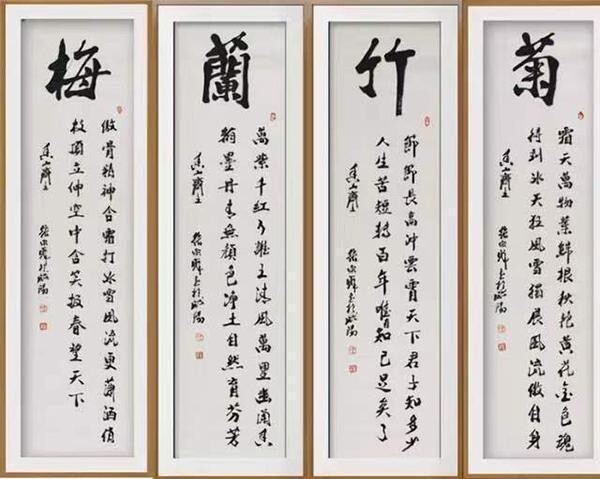 梅
傲骨精神含霜打冰雪風流更瀟洒俏
枝頂立伸空中含笑報春望天下
蘭
萬紫千紅誰主清風萬里幽蘭香
翰墨丹青無顏色淨土自然育芬芳
竹
節節長高沖雲霄天下君子知多少
人生苦短轉百年知己足矣了
菊
霜天萬物葉歸根秋艷黃花金色魂
待到冰天狂風雪獨展風流傲自身